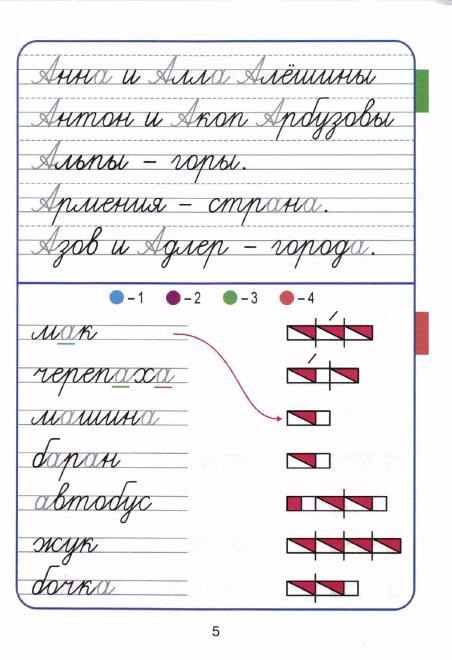 Анна и Алла Алёшины
Антон и Акоп Арбузовы
Альпы – горы.
Армения – страна.
Азов и Адлер – города.
– 1 – 2 – 3 – 4
мак
черепаха
машина
баран
автобус
жук
бочка
5